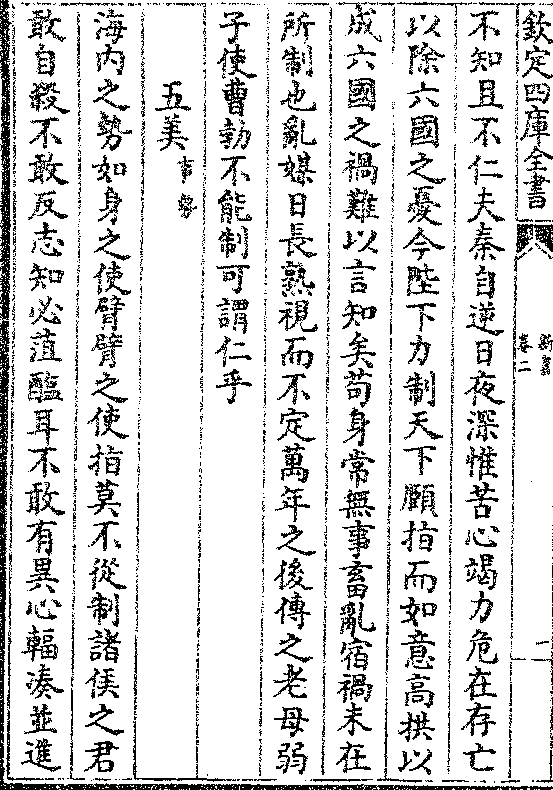 欽定四庫全書
新書
卷二
一
不知且不仁夫秦自逆日夜深惟苦心竭力危在存亡
以除六國之憂今陛下力制天下頤指而如意高拱以
成六國之禍難以言知矣苟身常無事畜亂宿禍未在
所制也亂媒日長熟視而不定萬年之後傳之老母弱
子使曹勃不能制可謂仁乎
五美事勢
海内之勢如身之使臂臂之使指莫不從制諸侯之君
敢自殺不敢反志知必菹醢耳不敢有異心輻凑並進